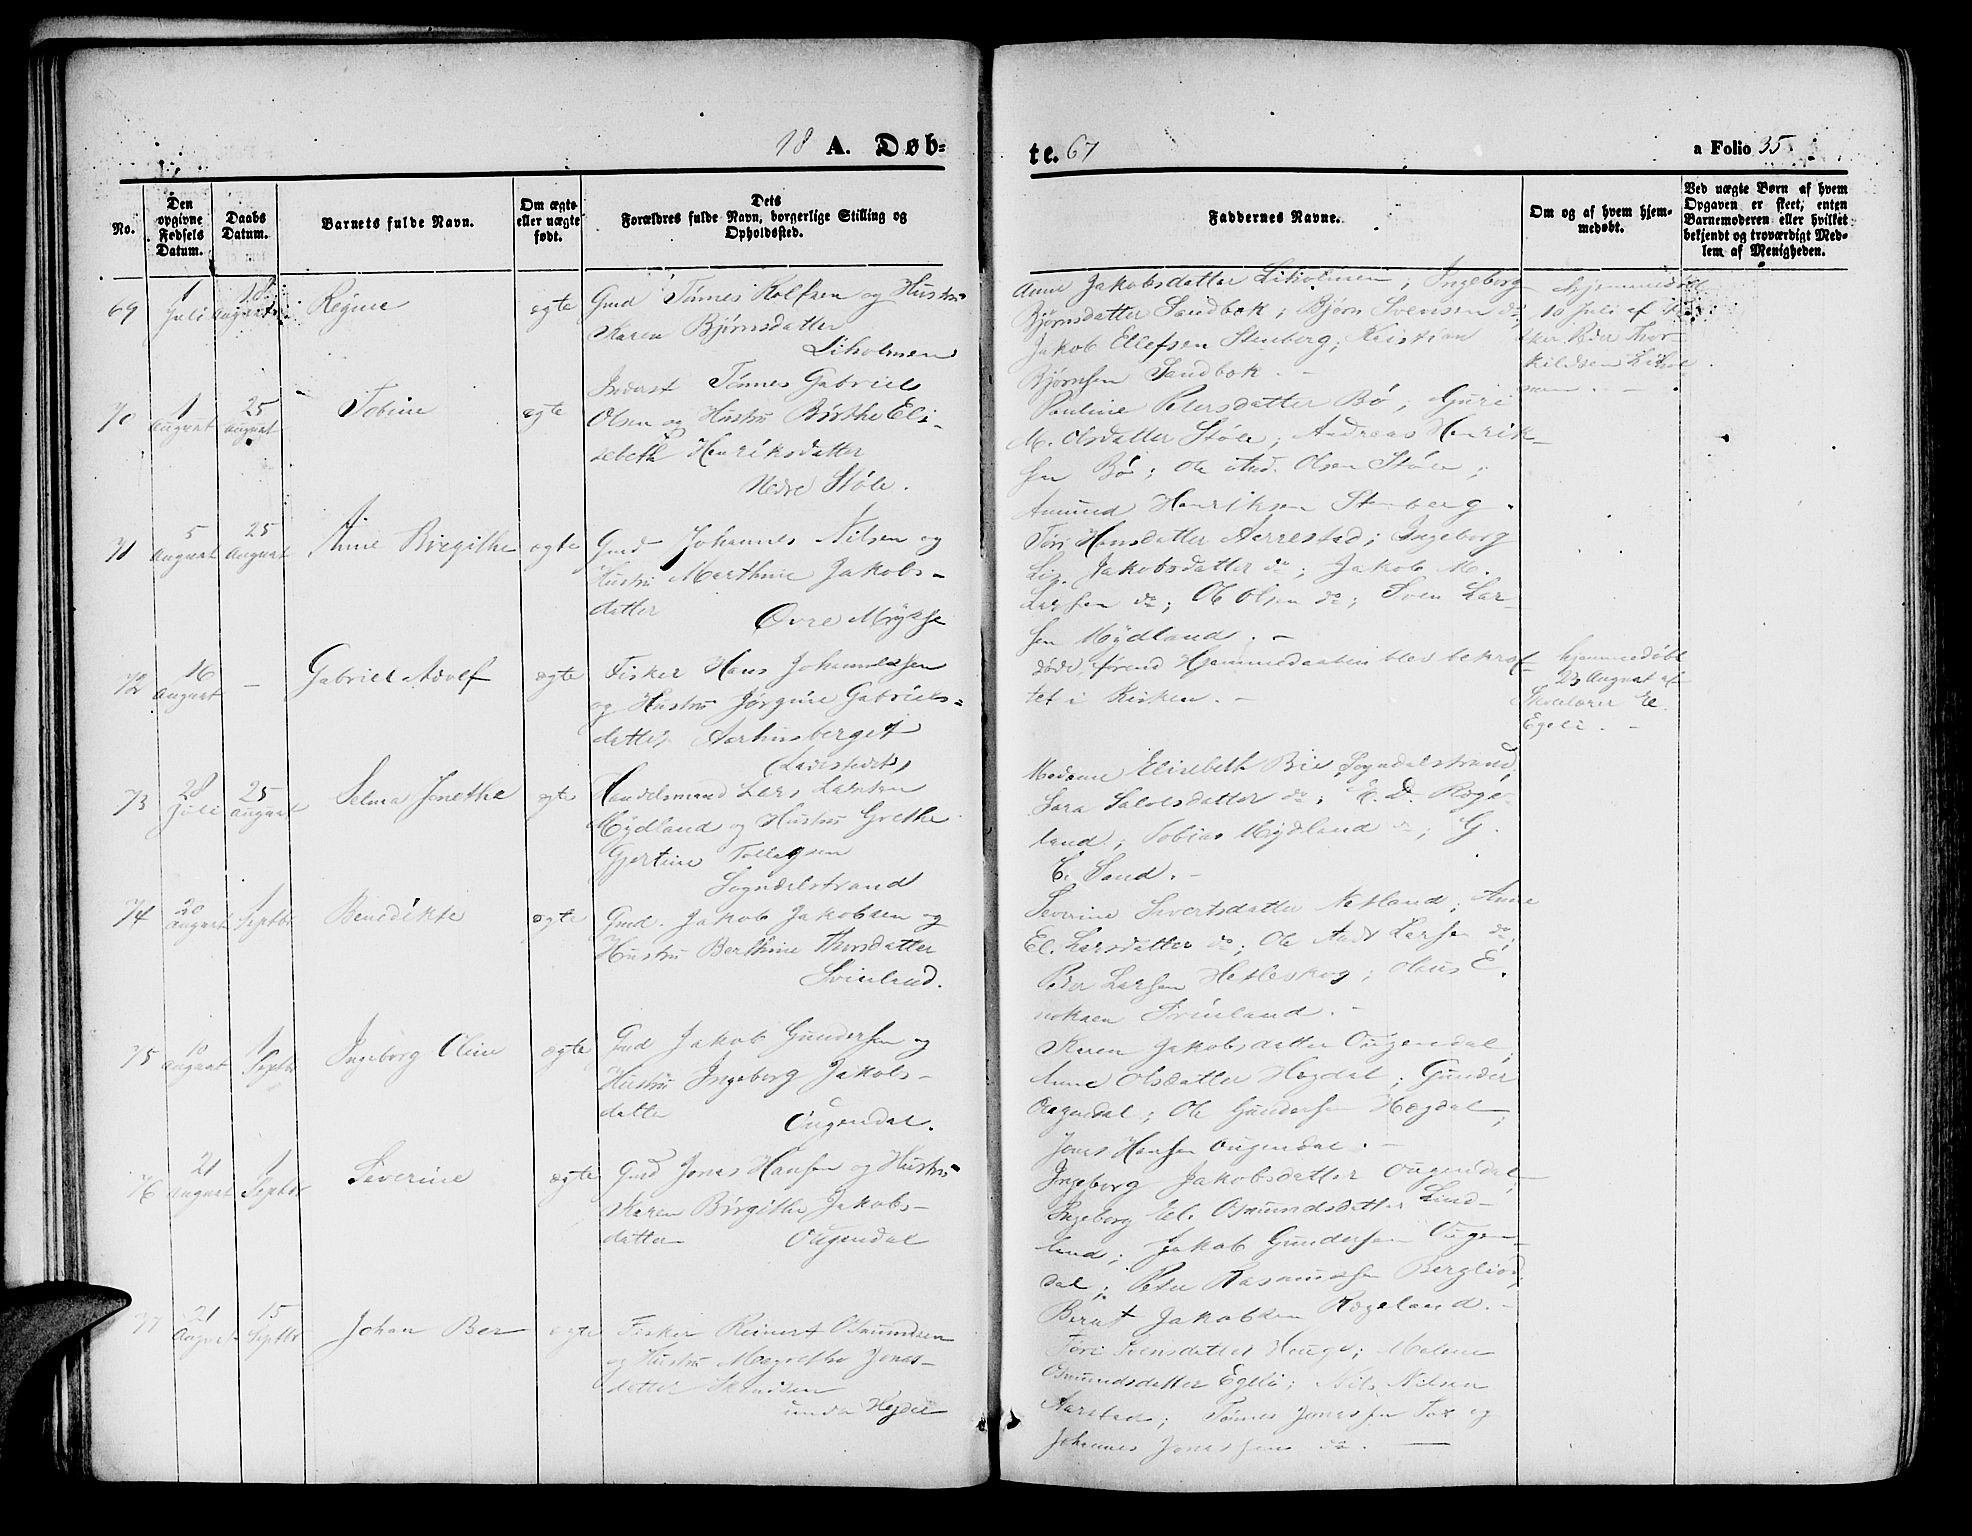 18 A. Døb-
No.
Den opgivne Fødsels Datum.
Daabs Datum.
Barnets fulde Navn.
Om ægte eller uægte født.
Dets
Forældres fulde Navn, borgerlige Stilling og
Opholdssted.
69 1 Juli 18 August Regine ægte Gmd Tønnes Rolfsen og Hustru
Karen Bjørnsdatter
Liholmen
70 1 August 25 August Tobine ægte Inderst Tønnes Gabriel
Olsen og Hustru Birthe Eli-
sebeth Henriksdatter
Nedre Støle.
71 5 August 25 August Anne Birgithe ægte Gmd Johannes Nilsen og
Hustru Marthine Jakobs-
datter Øvre Mykse
72 16 August - Gabriel Adolf ægte Fisker Hans Johannesen
og Hustru Jørgine Gabriels-
datter Aarhusberget
73 28 Juli 25 August Selma Jonethe ægte Handelsmand Lars Larsen
Mydland og Hustru Grethe
Gjertine Tollagsen
Sogndalstrand
74 20 August 1 Septbr Benedikte ægte Gmd. Jakob Jakobsen og
Hustru Berthine Thorsdatter
Svinland.
75 10 August 1 Septbr Ingeborg Oline ægte Gmd Jakob Gundersen og
Hustru Ingeborg Jakobs-
datter
Ougendal.
76 21 August 1 Septbr Severine ægte Gmd Jonas Hansen og Hustru
Karen Birgithe Jakobs-
datter Ougendal
77 21 August 15 Septbr Johan Ber ægte Fisker Reinert Osmundsen
og Hustru Margrethe Jonas-
datter
under Hegdal
te. 67
a Folio 35
Faddernes Navne.
Om og af hvem hjem-
medøbt.
Ved uægte Børn af hvem
Opgaven er skeet, enten
Barnemoderen eller hvilket
bekjendt og troværdigt Med-
lem af Menigheden.
Anne Jakobsdatter Liholmen; Ingeborg
Bjørnsdatter Sandbok; Bjørn Svensen do;
Jakob Ellefsen Stenberg; Kristian
Bjørnsen Sandbok. -
Hjemmedøbt
10 Juli af
Peder Thor-
kildsen Lihol-
men. -
Pauline Petersdatter Bø; Guri
M. Olsdatter Støle; Andreas Henrik-
sen Bø; Ole And. Olsen Støle;
Amund Henriksen Stenberg.
Tøri Hansdatter Aarrestad; Ingeborg
Liz. Jakobsdatter do; Jakob M.
Larsen do; Ole Olsen do; Sven Lar-
sen Mydland. -
døde førend Hjemmedaaben blev bekræf-
tet i Kirken. -
hjemmedøbt
23 August af
Skolelærer E.
Egeli. -
Madame Elisebeth Bie Sogndalstrand,
Sara Salvesdatter do; E. D. Roge-
land; Tobias Mydland do; G.
E. Sand. -
Severine Sivertsdatter Netland; Anne
El. Larsdatter do; Ole Andr Larsen do;
Peder Larsen Hetleskog; Olaus E.
noksen Svinland. -
Karen Jakobsdatter Ougendal;
Anne Olsdatter Hegdal; Gunder
Ougendal; Ole Gundersen Hegdal;
Jonas Hansen Ougendal. -
Ingeborg Jakobsdatter Ougendal;
Ingeborg El. Osmundsdatter Lind-
land; Jakob Gundersen Ougen-
dal; Peter Rasmussen Berglied;
Berut Jakobsen Rogeland. -
Tøri Svensdatter Hauge; Malene
Osmundsdatter Egeli; Nils Nilsen
Aarstad; Tønnes Jonassen Tox og
Johannes Jonassen do. -